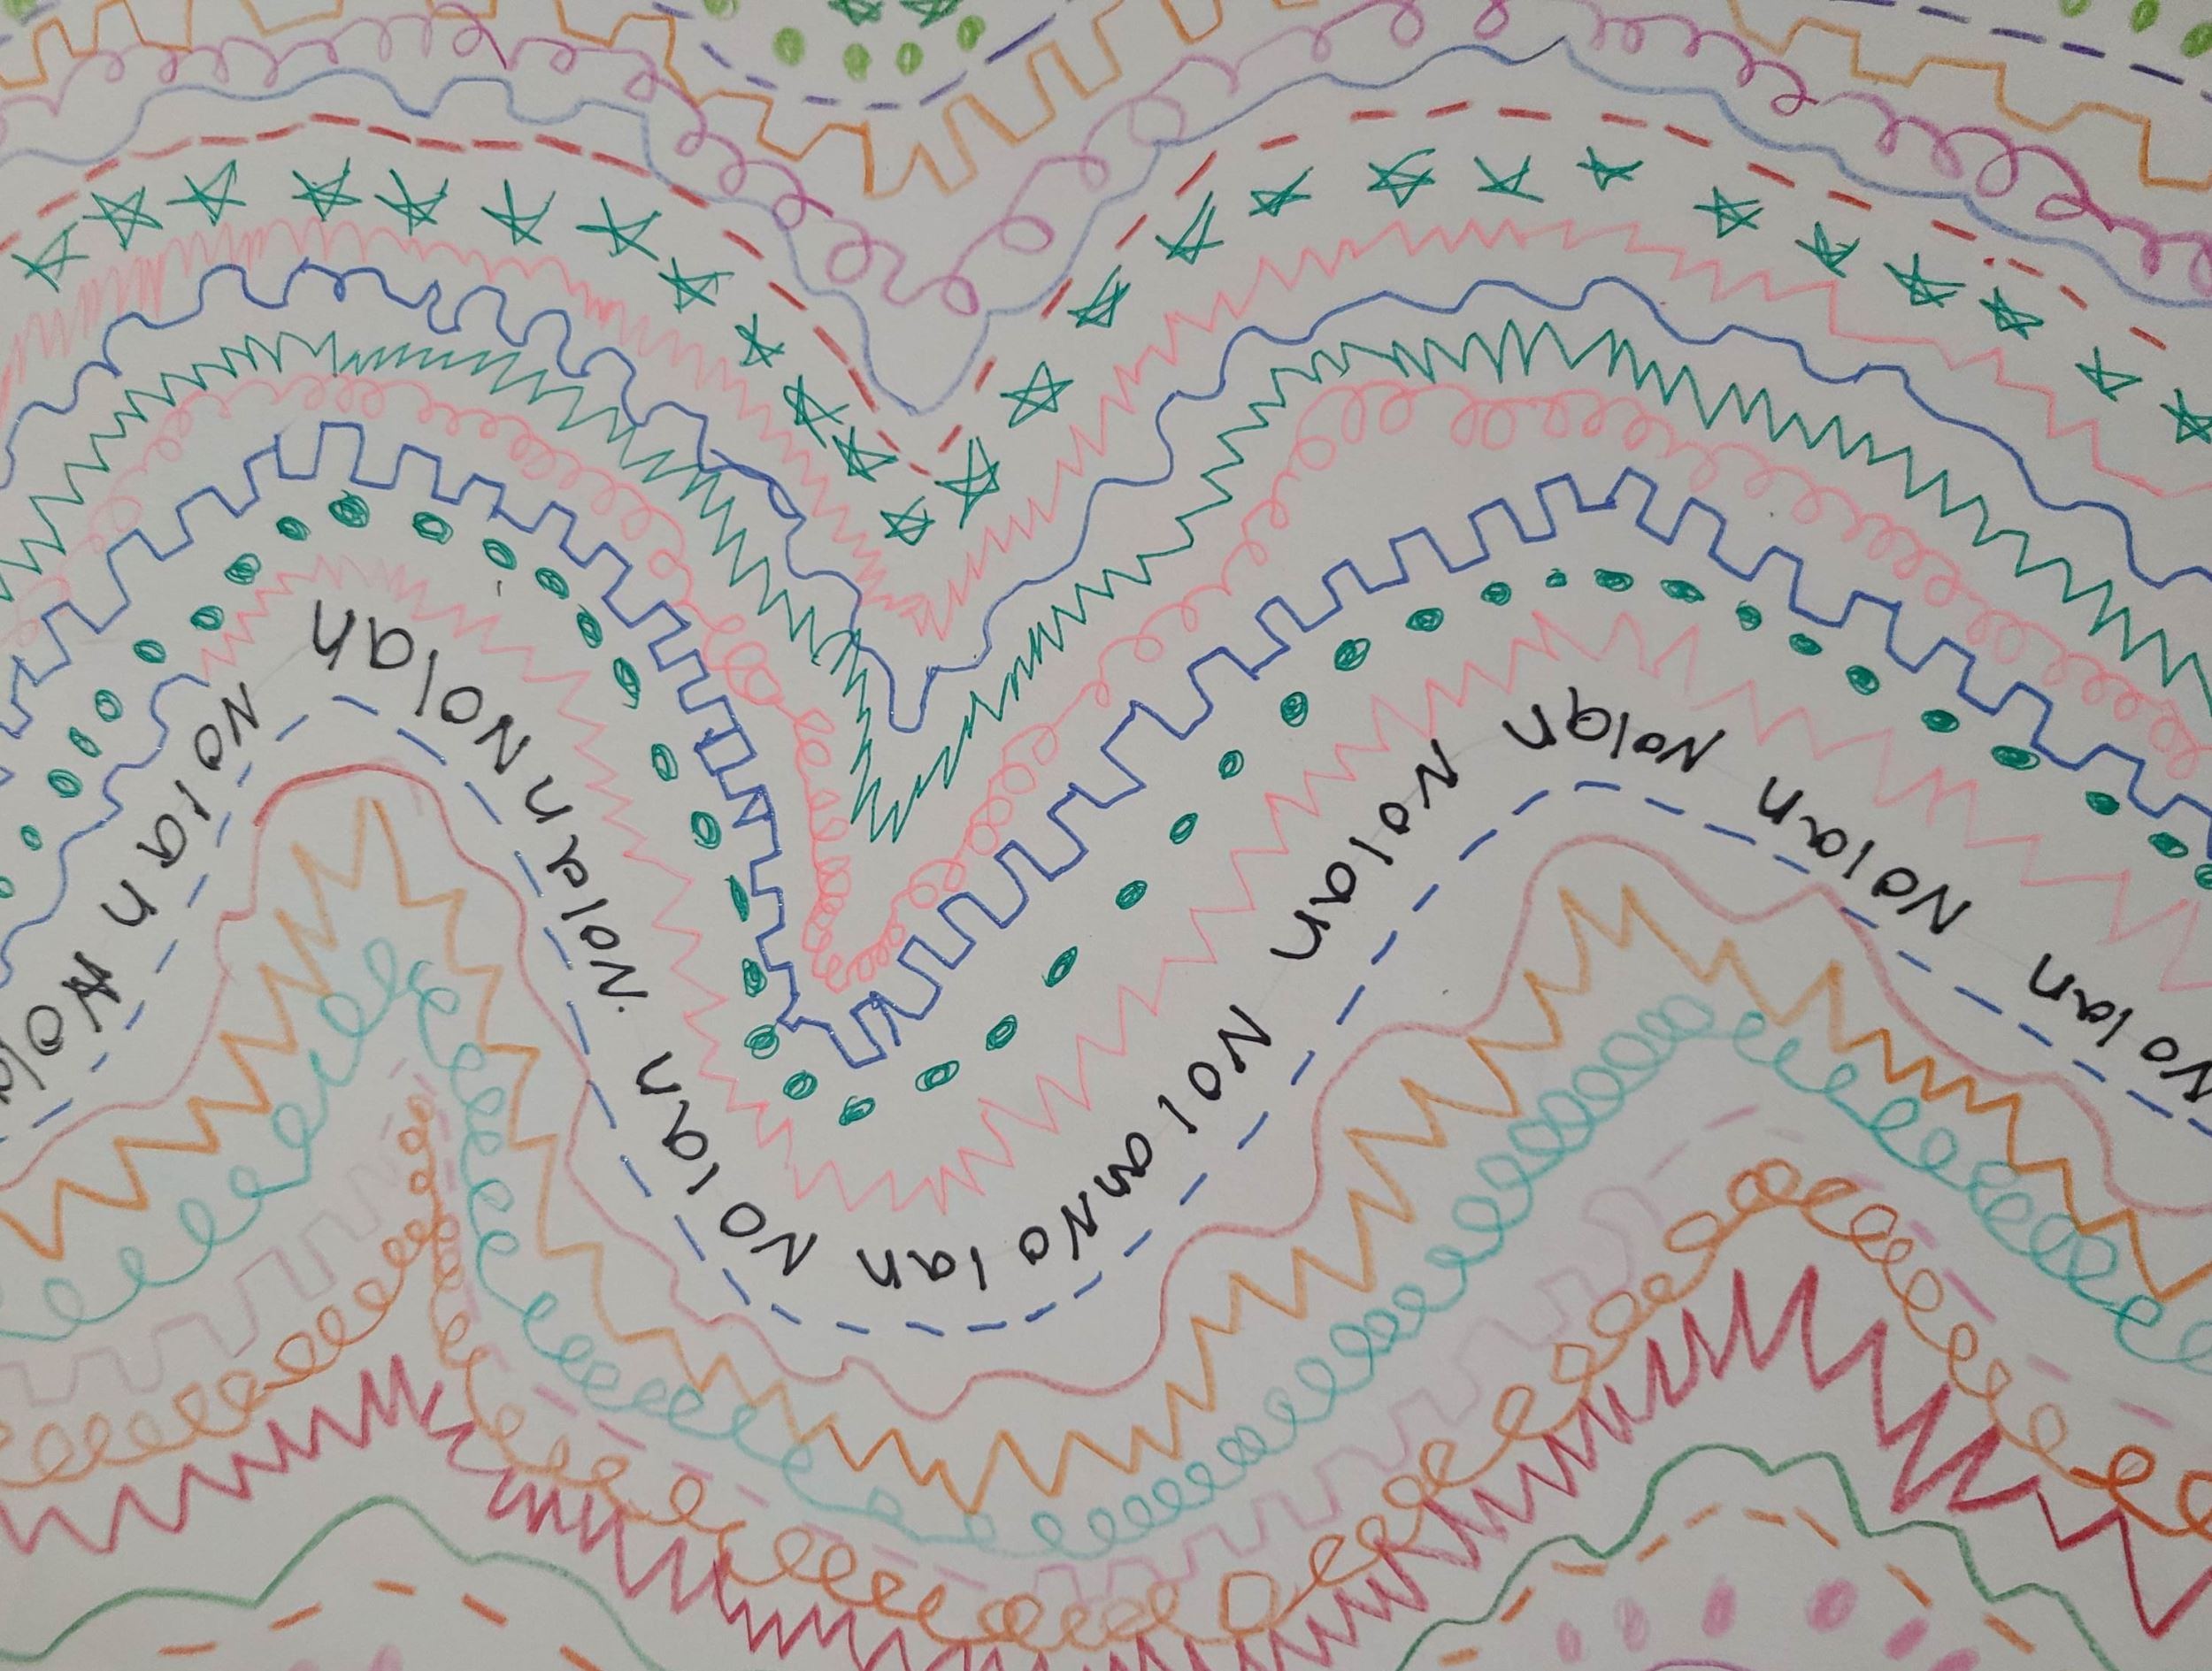 Nolan Nolan Nolan Nolan Nolan Nolan Nolan Nolan Nolan Nolan Nola